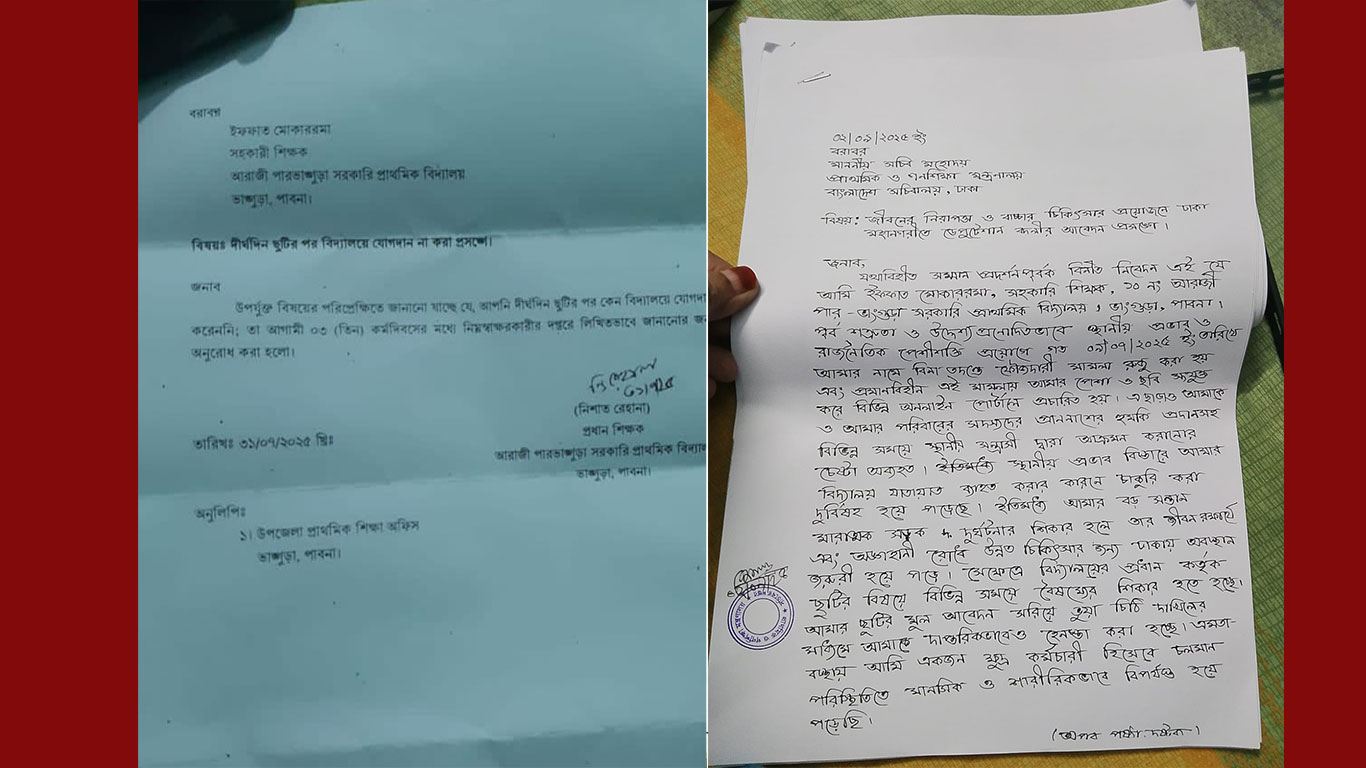 বরাবর
ইফফাত মোকাররমা
সহকারী শিক্ষক
আরাজী পারভাঙ্গুড়া সরকারি প্রাথমিক বিদ্যালয়
ভাঙ্গুড়া, পাবনা।
বিষয়ঃ দীর্ঘদিন ছুটির পর বিদ্যালয়ে যোগদান না করা প্রসঙ্গে।
জনাব
উপর্যুক্ত বিষয়ের পরিপ্রেক্ষিতে জানানো যাচ্ছে যে, আপনি দীর্ঘদিন ছুটির পর কেন বিদ্যালয়ে যোগদা
করেননি; তা আগামী ০৩ (তিন) কর্মদিবসের মধ্যে নিম্নস্বাক্ষরকারীর দপ্তরে লিখিতভাবে জানানোর জন
অনুরোধ করা হলো।
(নিশাত রেহানা)
প্রধান শিক্ষক
তারিখঃ ৩১/০৭/২০২৫ খ্রিঃ
আরাজী পারভাঙ্গুড়া সরকারি প্রাথমিক বিদ্যাল
ভাঙ্গুড়া, পাবনা।
অনুলিপিঃ
১। উপজেলা প্রাথমিক শিক্ষা অফিস
ভাঙ্গুড়া, পাবনা।
০২/০৯/২০২৫ ইং
বরাবর
মাননীয় সচিব মহোদয়
প্রাথমিক ও গনশিক্ষা মন্ত্রণালয়
বাংলাদেশ সচিবালয়, ঢাকা
বিষয়: জীবনের নিরাপত্তা ও বাচ্চার চিকিৎসার প্রয়োজনে ঢাকা
মহানগরীতে ডেপুটেশান বদলীর আবেদন প্রসঙ্গে।
জনাব,
যথাবিহীত সম্মান প্রদর্শনপূর্বক বিনীত নিবেদন এই যে
আমি ইফফাত মোকাররমা, সহকারি শিক্ষক, ১০ নং আরাজী
পার-ভাংগুড়া সরকারি প্রাথমিক বিদ্যালয়, ভাংগুড়া, পাবনা।
পূর্ব শত্রুতা ও উদ্দেশ্যপ্রনোদিতভাবে স্থানীয় প্রভাব ও
রাজনৈতিক পেশীশক্তি প্রয়োগে গত ০৯/০৭/২০২৫ ইং তারিখে
আমার নামে বিনা তদন্তে ফৌজদারী মামলা রুজু করা হয়
এবং প্রমানবিহীন এই মামলায় আমার পেশা ও ছবি সংযুক্ত
করে বিভিন্ন অনলাইন পোর্টালে প্রচারিত হয়। এছাড়াও আমাকে
ও আমার পরিবারের সদস্যদের প্রাননাশের হুমকি প্রদানসহ
বিভিন্ন সময়ে স্থানীয় সন্ত্রাসী দ্বারা আক্রমন করানোর
চেষ্টা অব্যহত। ইতিমধ্যে স্থানীয় প্রভাব বিস্তারে আমার
বিদ্যালয় যাতায়াত ব্যহত করার কারনে চাকুরি করা
দুর্বিষহ হয়ে পড়েছে। ইতিমধ্যে আমার বড় সন্তান
মারাত্মক সড়ক দুর্ঘটনার শিকার হলে তার জীবন রক্ষার্থে
এবং অঙ্গহানী রোধে উন্নত চিকিৎসার জন্য ঢাকায় অবস্থান
জরুরী হয়ে পড়ে। সেক্ষেত্রে বিদ্যালয়ের প্রধান কর্তৃক
ছুটির বিষয়ে বিভিন্ন সময়ে বৈষম্যের শিকার হতে হচ্ছে।
আমার ছুটির মূল আবেদন সরিয়ে ভুয়া চিঠি দাখিলের
মাধ্যমে আমাকে দাপ্তরিকভাবেও হেনস্তা করা হচ্ছে। এমতা-
বস্থায় আমি একজন ক্ষুদ্র কর্মচারী হিসেবে চলমান
পরিস্থিতিতে মানসিক ও শারীরিকভাবে বিপর্যস্ত হয়ে
পড়েছি।
(অপর পৃষ্ঠা দ্রষ্টব্য)